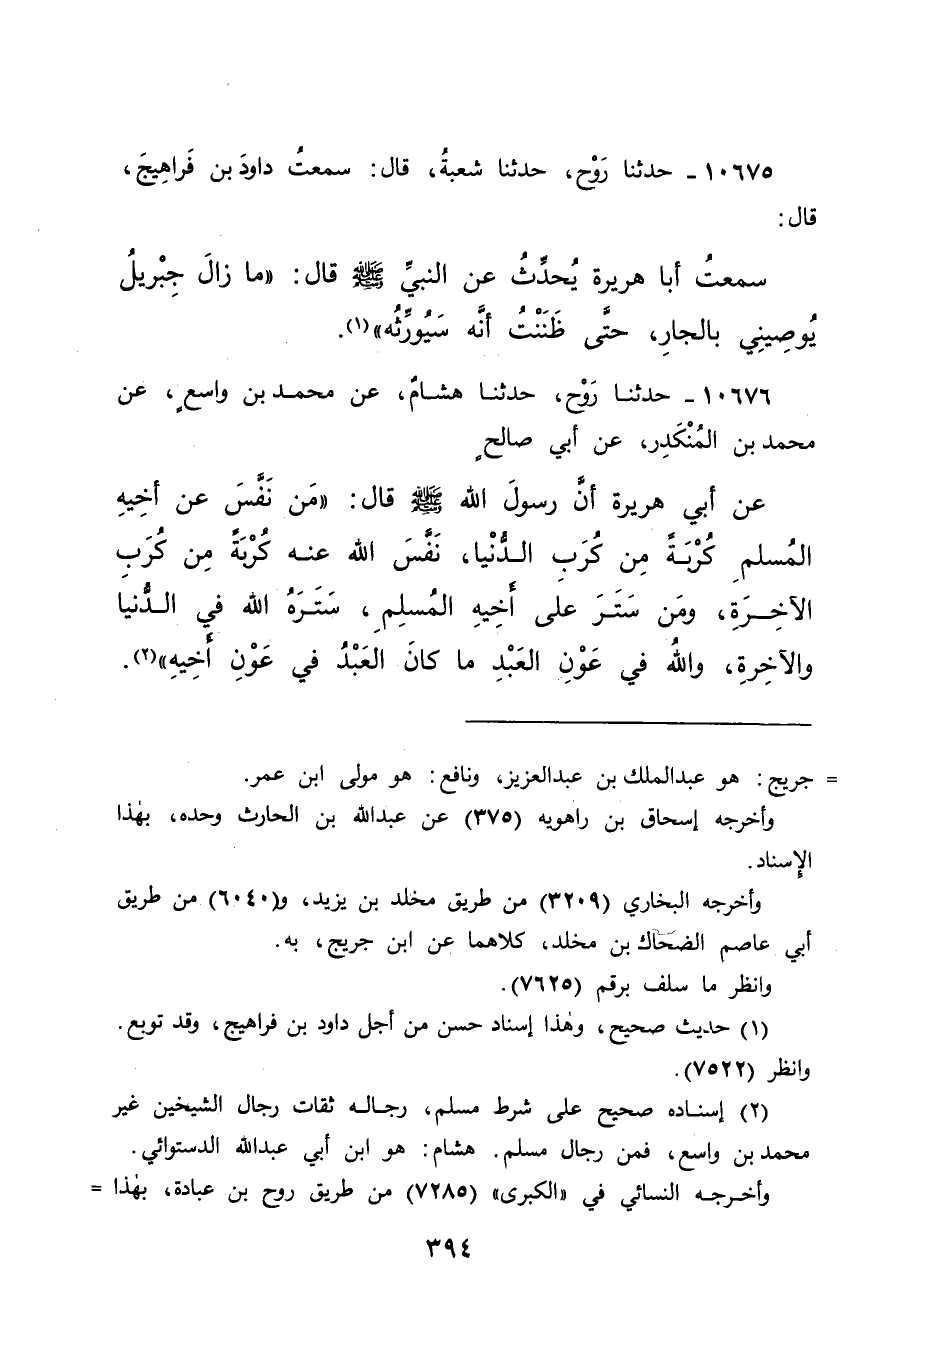 ١٠٦٧٥ ـ حدثنا رَوْح، حدثنا شعبةُ، قال: سمعتُ داودَ بن فَراهِيجَ،
قال:
سمعتُ أبا هريرة يُحدِّثُ عن النبيِّ ﷺ قال: «ما زالَ جِبْريلُ
يُوصِيني بالجارِ، حتَّى ظَنَنْتُ أنَّه سَيُورِّثُه»(١).
١٠٦٧٦ ـ حدثنا رَوْح، حدثنا هشامٌ، عن محمد بن واسعٍ، عن
محمد بن المُنْكَدِر، عن أبي صالحٍ
عن أبي هريرة أنَّ رسولَ الله ﷺ قال: «مَن نَفَّسَ عن أخِيهِ
المُسلمِ كُرْبَةً مِن كُرَبِ الدُّنْيا، نَفَّسَ الله عنه كُرْبَةً مِن كُرَبِ
الآخِرَةِ، ومَن سَتَرَ على أَخِيهِ المُسلمِ، سَتَرَهُ الله في الدُّنيا
والآخِرةِ، واللهُ في عَوْنِ العَبْدِ ما كانَ العَبْدُ في عَوْنِ أَخيهِ»(٢).
= جريج: هو عبدالملك بن عبدالعزيز، ونافع: هو مولى ابن عمر.
وأخرجه إسحاق بن راهويه (٣٧٥) عن عبدالله بن الحارث وحده، بهٰذا
الإسناد.
وأخرجه البخاري (٣٢٠٩) من طريق مخلد بن يزيد، و(٦٠٤٠) من طريق
أبي عاصم الضحّاك بن مخلد، كلاهما عن ابن جريج، به.
وانظر ما سلف برقم (٧٦٢٥).
(١) حديث صحيح، وهٰذا إسناد حسن من أجل داود بن فراهيج، وقد توبع.
وانظر (٧٥٢٢).
(٢) إسناده صحيح على شرط مسلم، رجاله ثقات رجال الشيخين غير
محمد بن واسع، فمن رجال مسلم. هشام: هو ابن أبي عبدالله الدستوائي.
وأخرجه النسائي في «الكبرى» (٧٢٨٥) من طريق روح بن عبادة، بهٰذا =
٣٩٤